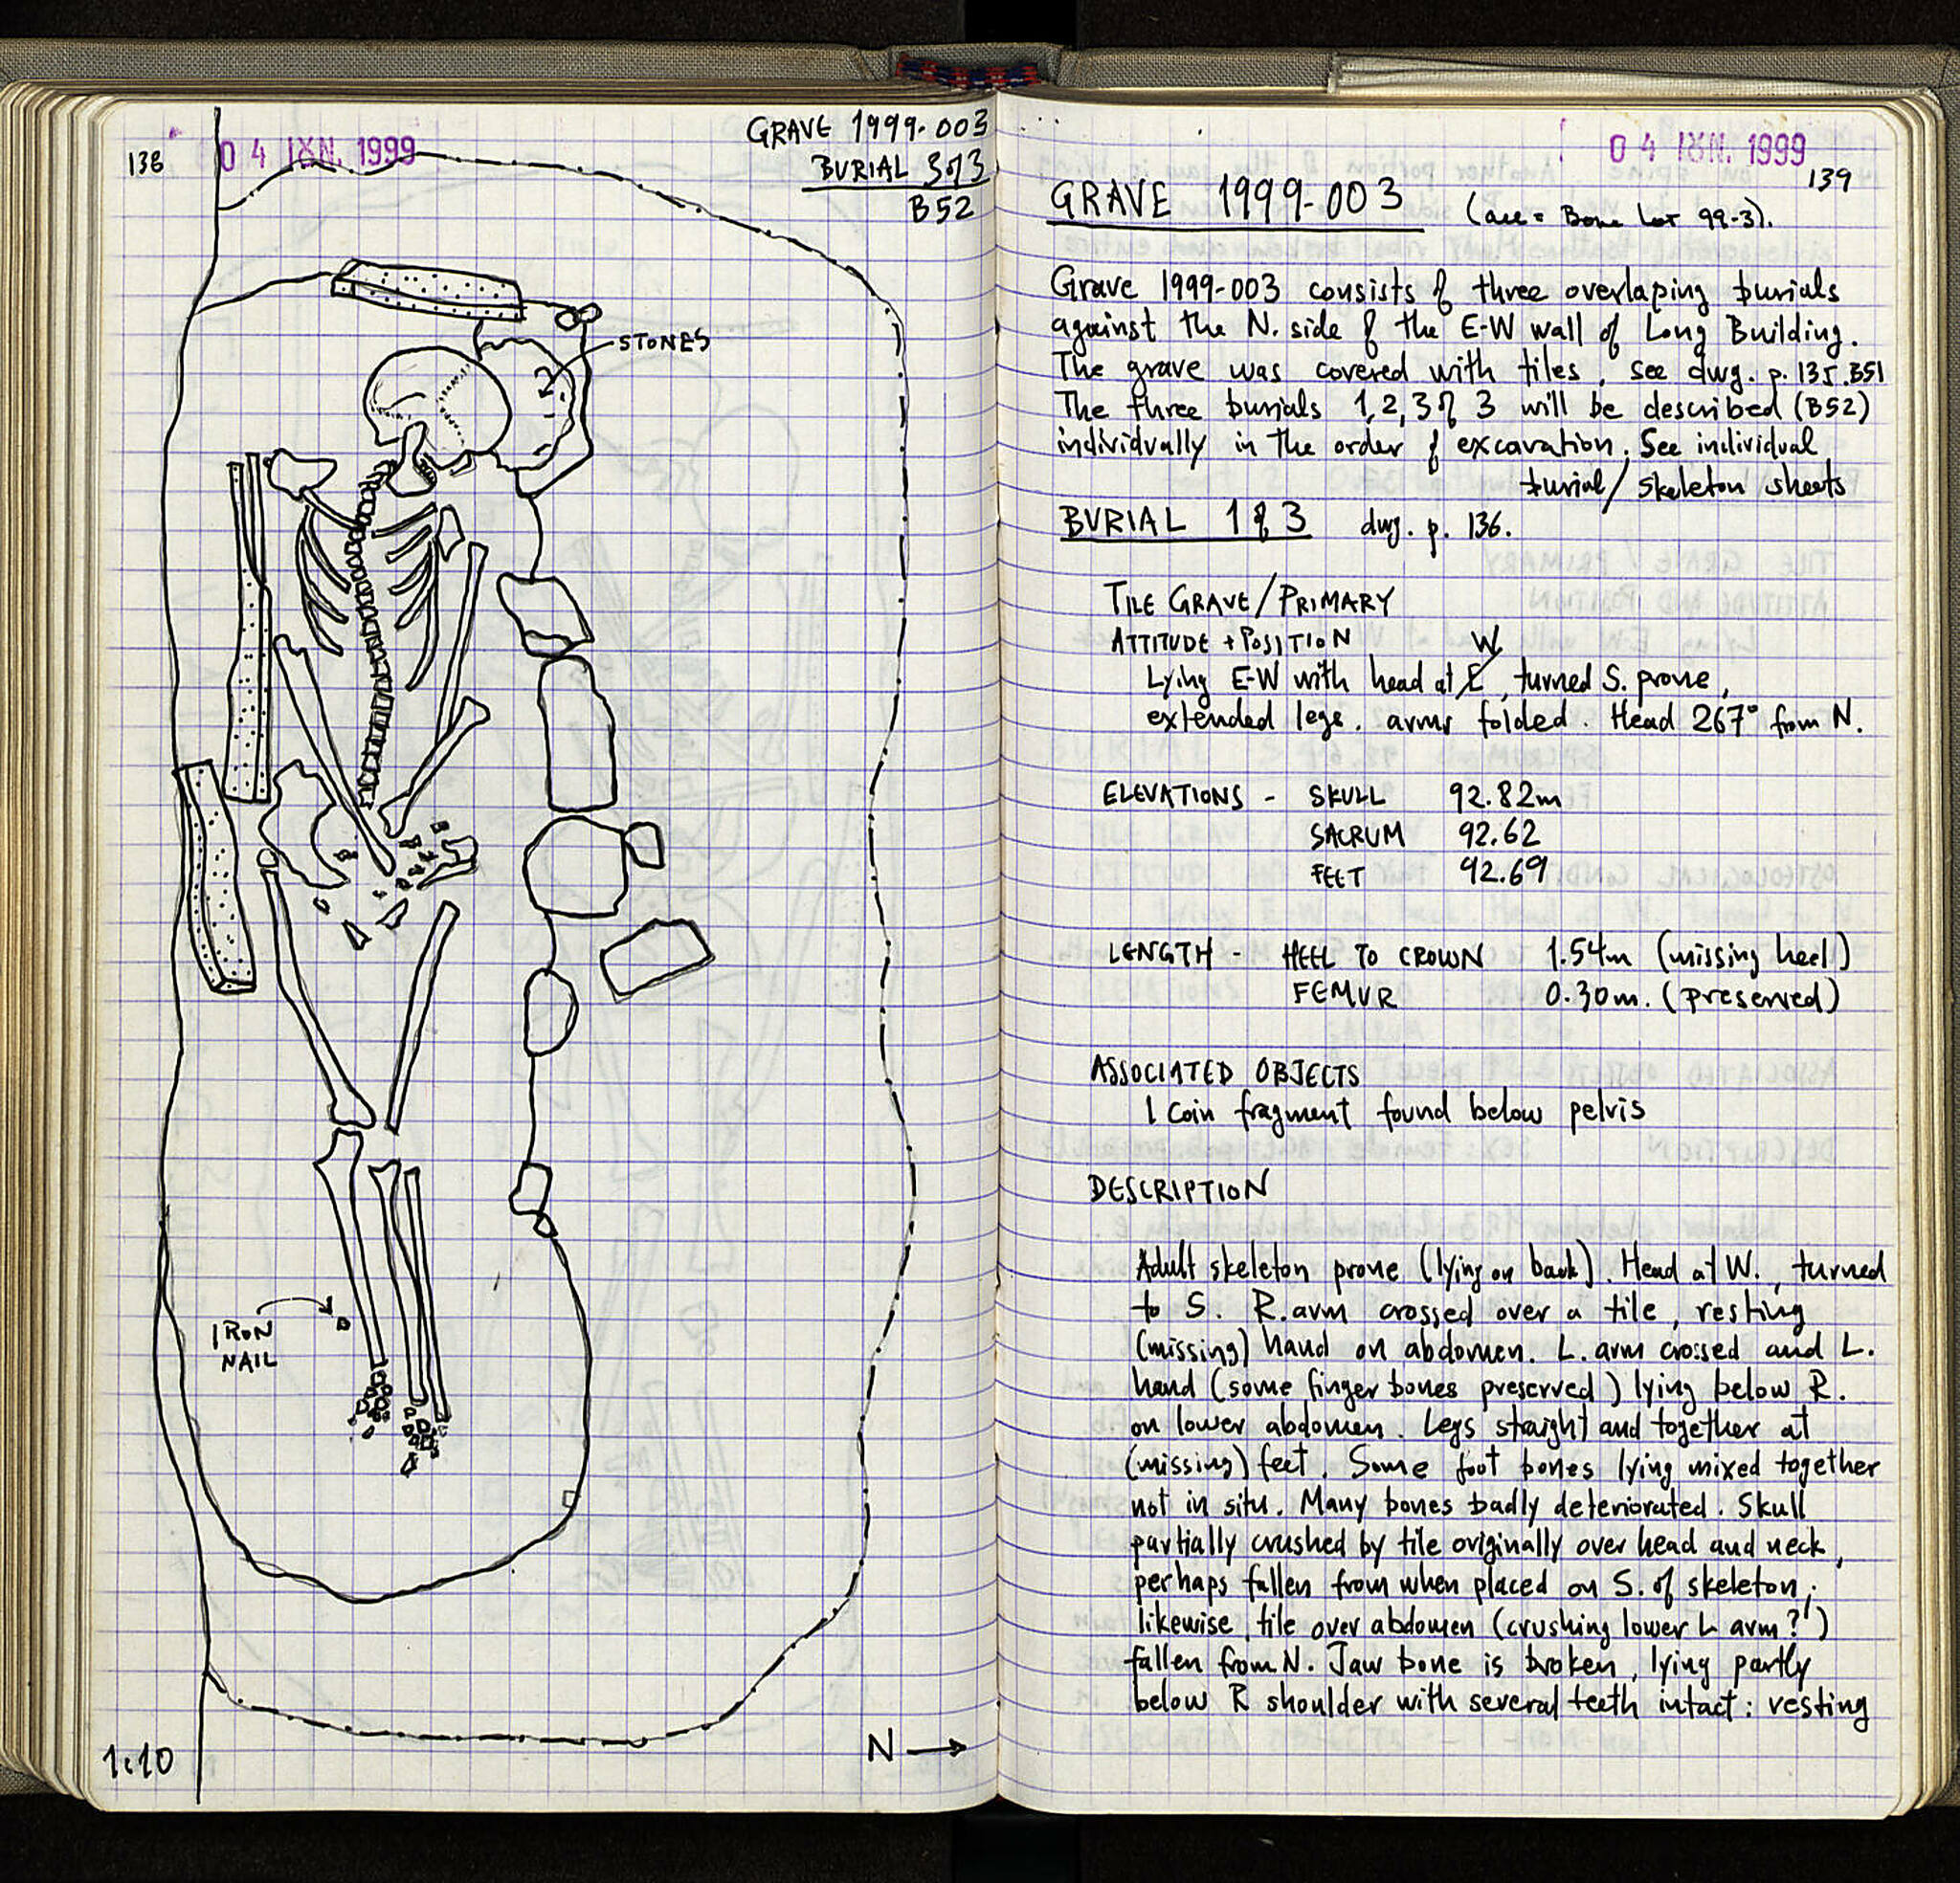 138
04 ΙΟΥΝ. 1999
GRAVE 1999-003
BURIAL 3 of 3
B52
STONES
IRON
NAIL
1:10
N
04 ΙΟΥΝ. 1999
139
GRAVE 1999-003 (all = Bone Lot 99-3).
Grave 1999-003 consists of three overlaping burials
against the N. side of the E-W wall of Long Building.
The grave was covered with tiles, see dwg. p. 135. B51
The three burials 1, 2, 3 of 3 will be described (B52)
individually in the order of excavation. See individual
burial/skeleton sheets
BURIAL 1 of 3 dwg. p. 136.
TILE GRAVE/PRIMARY
ATTITUDE + POSITION
W
Lying E-W with head at E, turned S. prone,
extended legs. arms folded. Head 267° from N.
ELEVATIONS - SKULL 92.82m
SACRUM 92.62
FEET 92.69
LENGTH - HEEL TO CROWN 1.54m (missing heel)
FEMUR 0.30m. (preserved)
ASSOCIATED OBJECTS
1 coin fragment found below pelvis
DESCRIPTION
Adult skeleton prone (lying on back). Head at W., turned
to S. R. arm crossed over a tile, resting
(missing) hand on abdomen. L. arm crossed and L.
hand (some finger bones preserved) lying below R.
on lower abdomen. Legs straight and together at
(missing) feet. Some foot bones lying mixed together
not in situ. Many bones badly deteriorated. Skull
partially crushed by tile originally over head and neck,
perhaps fallen from when placed on S. of skeleton;
likewise, tile over abdomen (crushing lower L arm?)
fallen from N. Jaw bone is broken, lying partly
below R shoulder with several teeth intact: resting